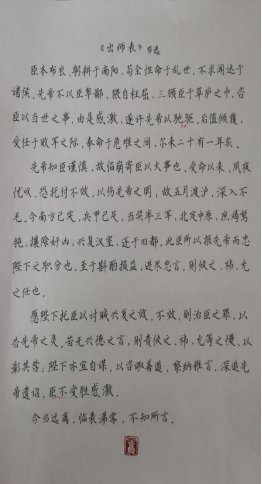 《出师表》节选
臣本布衣，躬耕于南阳，苟全性命于乱世，不求闻达于
诸侯。先帝不以臣卑鄙，猥自枉屈，三顾臣于草庐之中，咨
臣以当世之事，由是感激，遂许先帝以驰驱。后值倾覆，
受任于败军之际，奉命于危难之间，尔来二十有一年矣。
先帝知臣谨慎，故临崩寄臣以大事也。受命以来，夙夜
忧叹，恐托付不效，以伤先帝之明；故五月渡泸，深入不
毛。今南方已定，兵甲已足，当奖率三军，北定中原，庶竭驽
钝，攘除奸凶，兴复汉室，还于旧都。此臣所以报先帝而忠
陛下之职分也。至于斟酌损益，进尽忠言，则攸之、祎、允
之任也。
愿陛下托臣以讨贼兴复之效，不效，则治臣之罪，以
告先帝之灵。若无兴德之言，则责攸之、祎、允等之慢，以
彰其咎；陛下亦宜自谋，以咨诹善道，察纳雅言，深追先
帝遗诏。臣不胜受恩感激。
今当远离，临表涕零，不知所言。